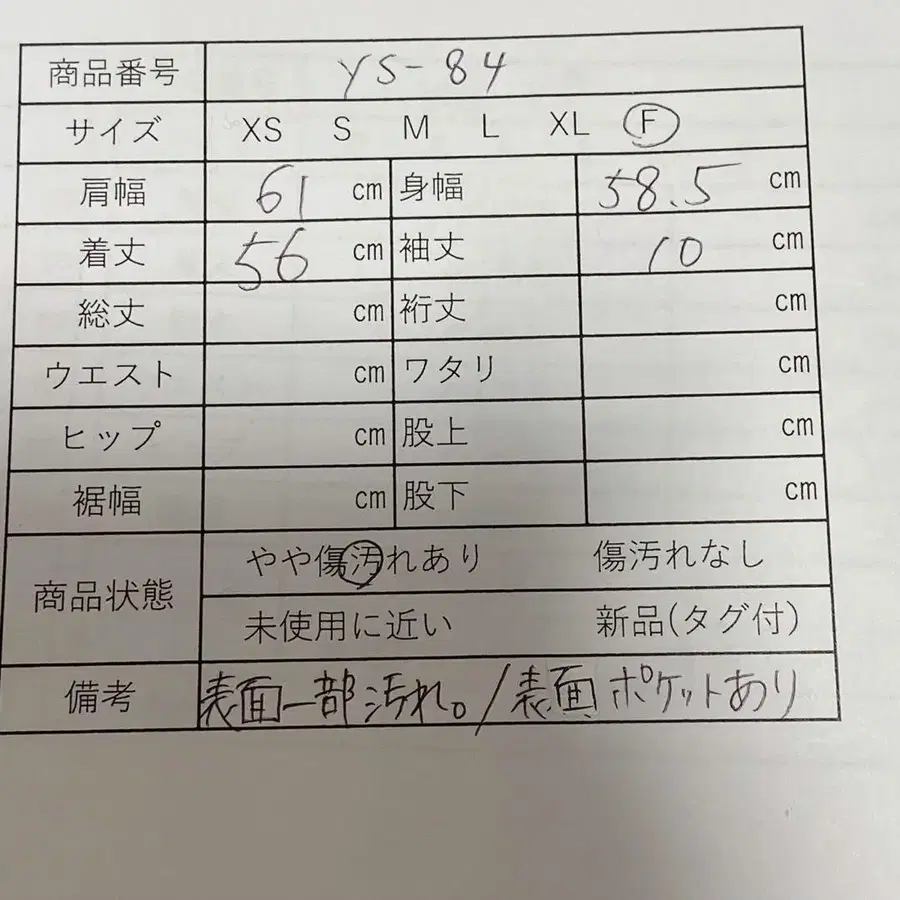 商品番号 YS-84
サイズ XS S M L XL F
肩幅 61 cm 身幅 58.5 cm
着丈 56 cm 袖丈 10 cm
総丈 cm 裄丈 cm
ウエスト cm ワタリ cm
ヒップ cm 股上 cm
裾幅 cm 股下 cm
商品状態 やや傷汚れあり 傷汚れなし
未使用に近い 新品(タグ付)
備考 表面一部汚れ。/表面ポケットあり